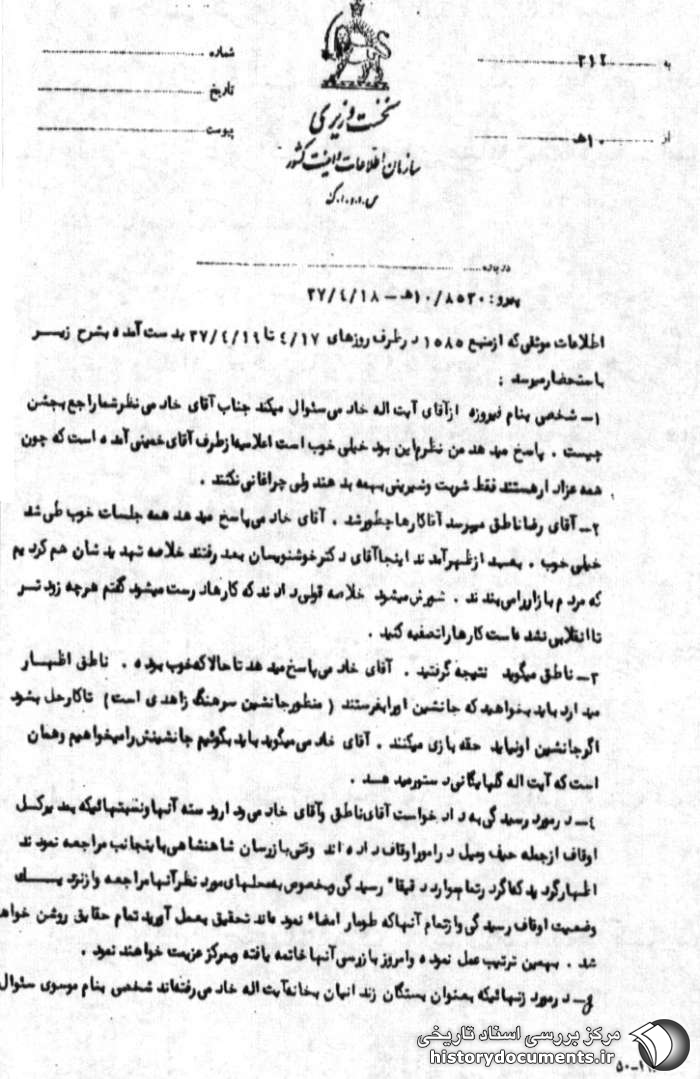 شماره
تاریخ
پیوست
به ۳۱۲
از ۱۰هـ
نخست وزیری
سازمان اطلاعات و امنیت کشور
س.ا.و.ا.ک
درباره
پیرو: ۱۰/۸۵۳۰هـ – ۳۷/۴/۱۸
اطلاعات موثقی که از منبع ۱۵۸۵ در ظرف روزهای ۴/۱۷ تا ۳۷/۴/۱۹ بدست آمده بشرح زیر
باستحضار میرسد :
۱– شخصی بنام فیروزه از آقای آیت اله خادمی سئوال میکند جناب آقای خادمی نظر شما راجع بجشن
چیست . پاسخ میدهد من نظرم این بود خیلی خوب است اعلامیه از طرف آقای خمینی آمده است که چون
همه عزادار هستند فقط شربت و شیرینی بهمه بدهند ولی چراغانی نکنند .
۲– آقای رضا ناطق میپرسد آقا کارها چطور شد . آقای خادمی پاسخ میدهد همه جلسات خوب طی شد
خیلی خوب . بعد از ظهر آمدند اینجا آقای دکتر خوشنویسان بعد رفتند خلاصه تهدیدشان هم کردیم
که مردم بازار را می بندند . شورش میشود خلاصه قولی دادند که کارها درست میشود گفتم هرچه زودتر
تا انقلابی نشده است کارها را تصفیه کنید .
۳– ناطق میگوید نتیجه گرفتید . آقای خادمی پاسخ میدهد تا حالا که خوب بوده . ناطق اظهار
میدارد باید بخواهید که جانشین او را بفرستند ( منظور جانشین سرهنگ زاهدی است ) تا کار حل بشود
اگر جانشین او نیاید حقه بازی میکنند . آقای خادمی میگوید باید بگوئیم جانشینش را میخواهیم و همان
است که آیت اله گلپایگانی دستور میدهد .
۴– در مورد رسیدگی به دادخواست آقای ناطق و آقای خادمی و دارودسته آنها و نسبتهائیکه بمدیرکل
اوقاف از جمله حیف و میل در امور اوقاف داده اند وقتی بازرسان شاهنشاهی باینجانب مراجعه نمودند
اظهار گردید که اگر در تمام موارد دقیقا" رسیدگی و بخصوص بمحلهای مورد نظر آنها مراجعه و از نزدیک
وضعیت اوقاف رسیدگی و از تمام آنها که طومار امضاء نموده اند تحقیق بعمل آورید تمام حقایق روشن خواهد
شد . بهمین ترتیب عمل نموده و امروز بازرسی آنها خاتمه یافته و بمرکز عزیمت خواهند نمود .
۶– در مورد زنهائیکه بعنوان بستگان زندانیان بخانه آیت اله خادمی رفته اند شخصی بنام موسوی سئوال
مرکز بررسی اسناد تاریخی
historydocuments.ir